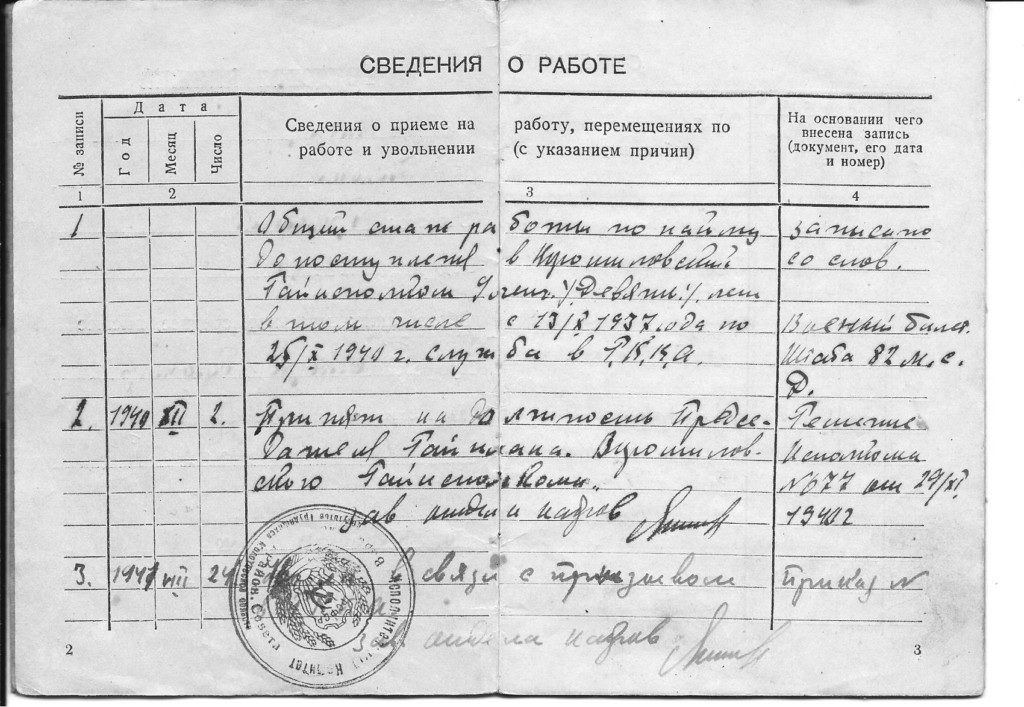 СВЕДЕНИЯ О РАБОТЕ
№ записи
Дата
Год
Месяц
Число
Сведения о приеме на работу, перемещениях по
работе и увольнении (с указанием причин)
На основании чего
внесена запись
(документ, его дата
и номер)
1 2 3 4
1 Общий стаж работы по найму записано
до поступления в Ворошиловский со слов.
Райисполком 9 /Девять/ лет
в том числе с 13/X 1937 года по Военный билет
25/X 1940 г. служба в Р.К.К.А. Штаба 82 м.с.
Д.
2. 1940 XII 2. Принят на должность Предсе- Решение
дателя Райплана Ворошилов- Исполкома
ского Райисполкома №677 от 29/XI
зав отделом кадров 1940 г
3. 1941 VIII в связи с призывом Приказ №
зав отдела кадров
2 3